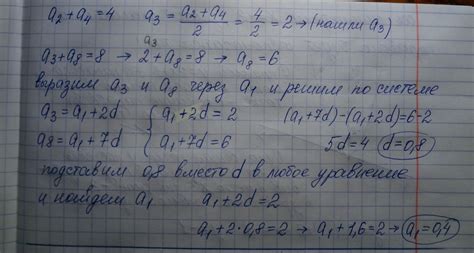 a₂+a₄=4 a₃ = (a₂+a₄)/2 = 4/2 = 2 → (нашли a₃)
a₃
a₃+a₈=8 → 2+a₈=8 → a₈=6
выразим a₃ и a₈ через a₁ и решим по системе
a₃=a₁+2d { a₁+2d=2 (a₁+7d)-(a₁+2d)=6-2
a₈=a₁+7d { a₁+7d=6 5d=4 d=0,8
подставим 0,8 вместо d в любое уравнение
и найдем a₁ a₁+2d=2
a₁+2·0,8=2 → a₁+1,6=2 → a₁=0,4